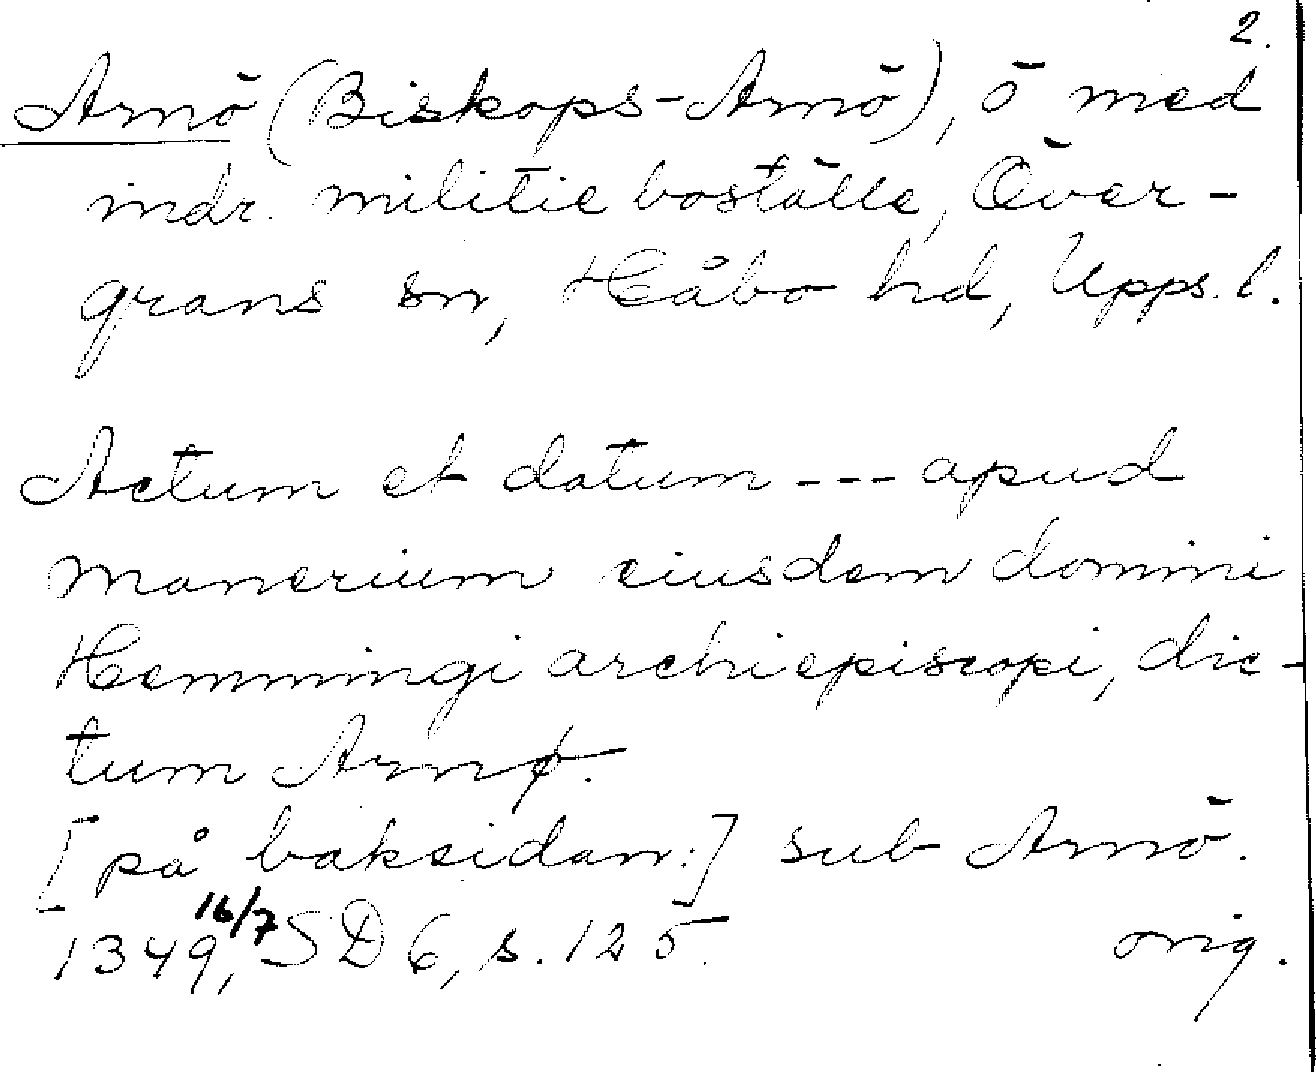 2.
Arnö (Biskops-Arnö), ö med
indr. militie boställe, Över-
grans sn, Håbo hd, Upps. l.
Actum et datum --- apud
manerium eiusdem domini
Hemmingi archiepiscopi, dic-
tum Arnø.
[på baksidan:] sub Arnö.
1349, 16/7 SD 6, s. 125. orig.